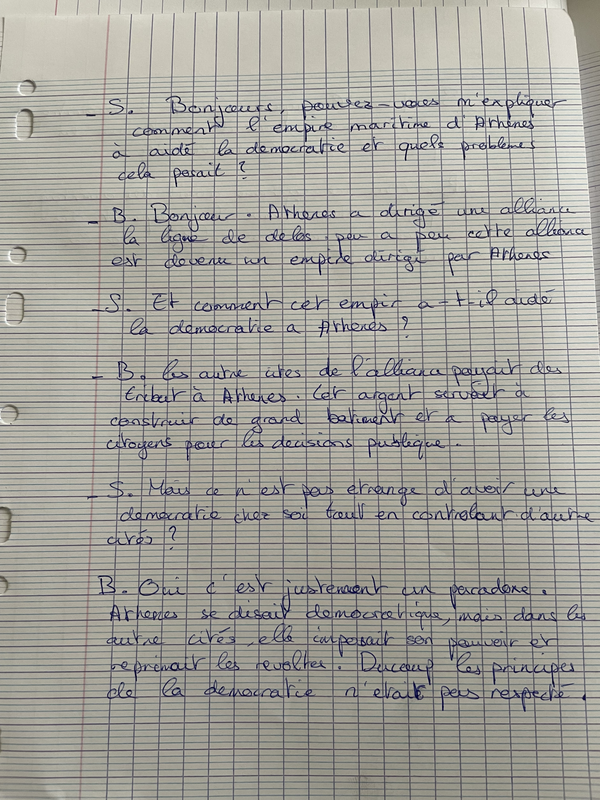 - S. Bonjours, pouvez-vous m'expliquer
comment l'empire maritime d'Athènes
à aidé la democratie et quels problèmes
cela posait ?
- B. Bonjour. Athènes a dirigé une alliance
la ligue de delos. peu a peu cette alliance
est devenu un empire dirigé par Athenes
- S. Et comment cet empir a-t-il aidé
la democratie a Athenes ?
- B. les autre cites de l'alliance payait des
tribut à Athenes. Cet argent servait à
construir de grand batiment et a payer les
citoyens pour les decisions publique.
- S. Mais ce n'est pas etrange d'avoir une
democratie chez soi tout en controlant d'autre
cités ?
B. Oui c'est justement un paradoxe.
Athenes se disait democratique, mais dans les
autre cités, elle imposait son pouvoir et
reprimait les revoltes. Ducoup les principes
de la democratie n'etait pas respecté.